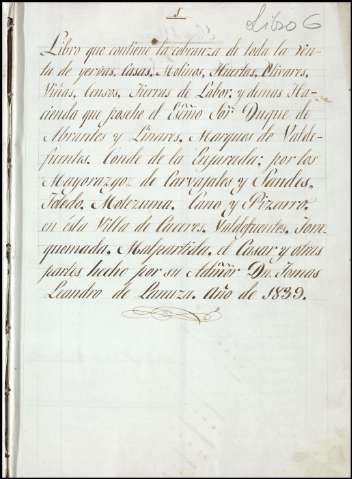 1
Libro 6
Libro que contiene la cobranza de toda la ren-
ta de yervas, Casas, Molinos, Huertas, Olivares,
Viñas, Censos, Tierras de Labor, y demas Ha-
cienda que poseho el Exmo Sor Duque de
Abrantes y Linares, Marques de Valde-
fuentes, Conde de la Enjarada; por los
Mayorazgos de Carvajales y Sandes,
Toledo, Moteszuma, Cano y Pizarro,
en esta Villa de Caceres, Valdefuentes, Torre-
quemada, Malpartida, el Casar y otras
partes hecho por su Admor Dn. Tomas
Leandro de Lanuza. Año de 1839.